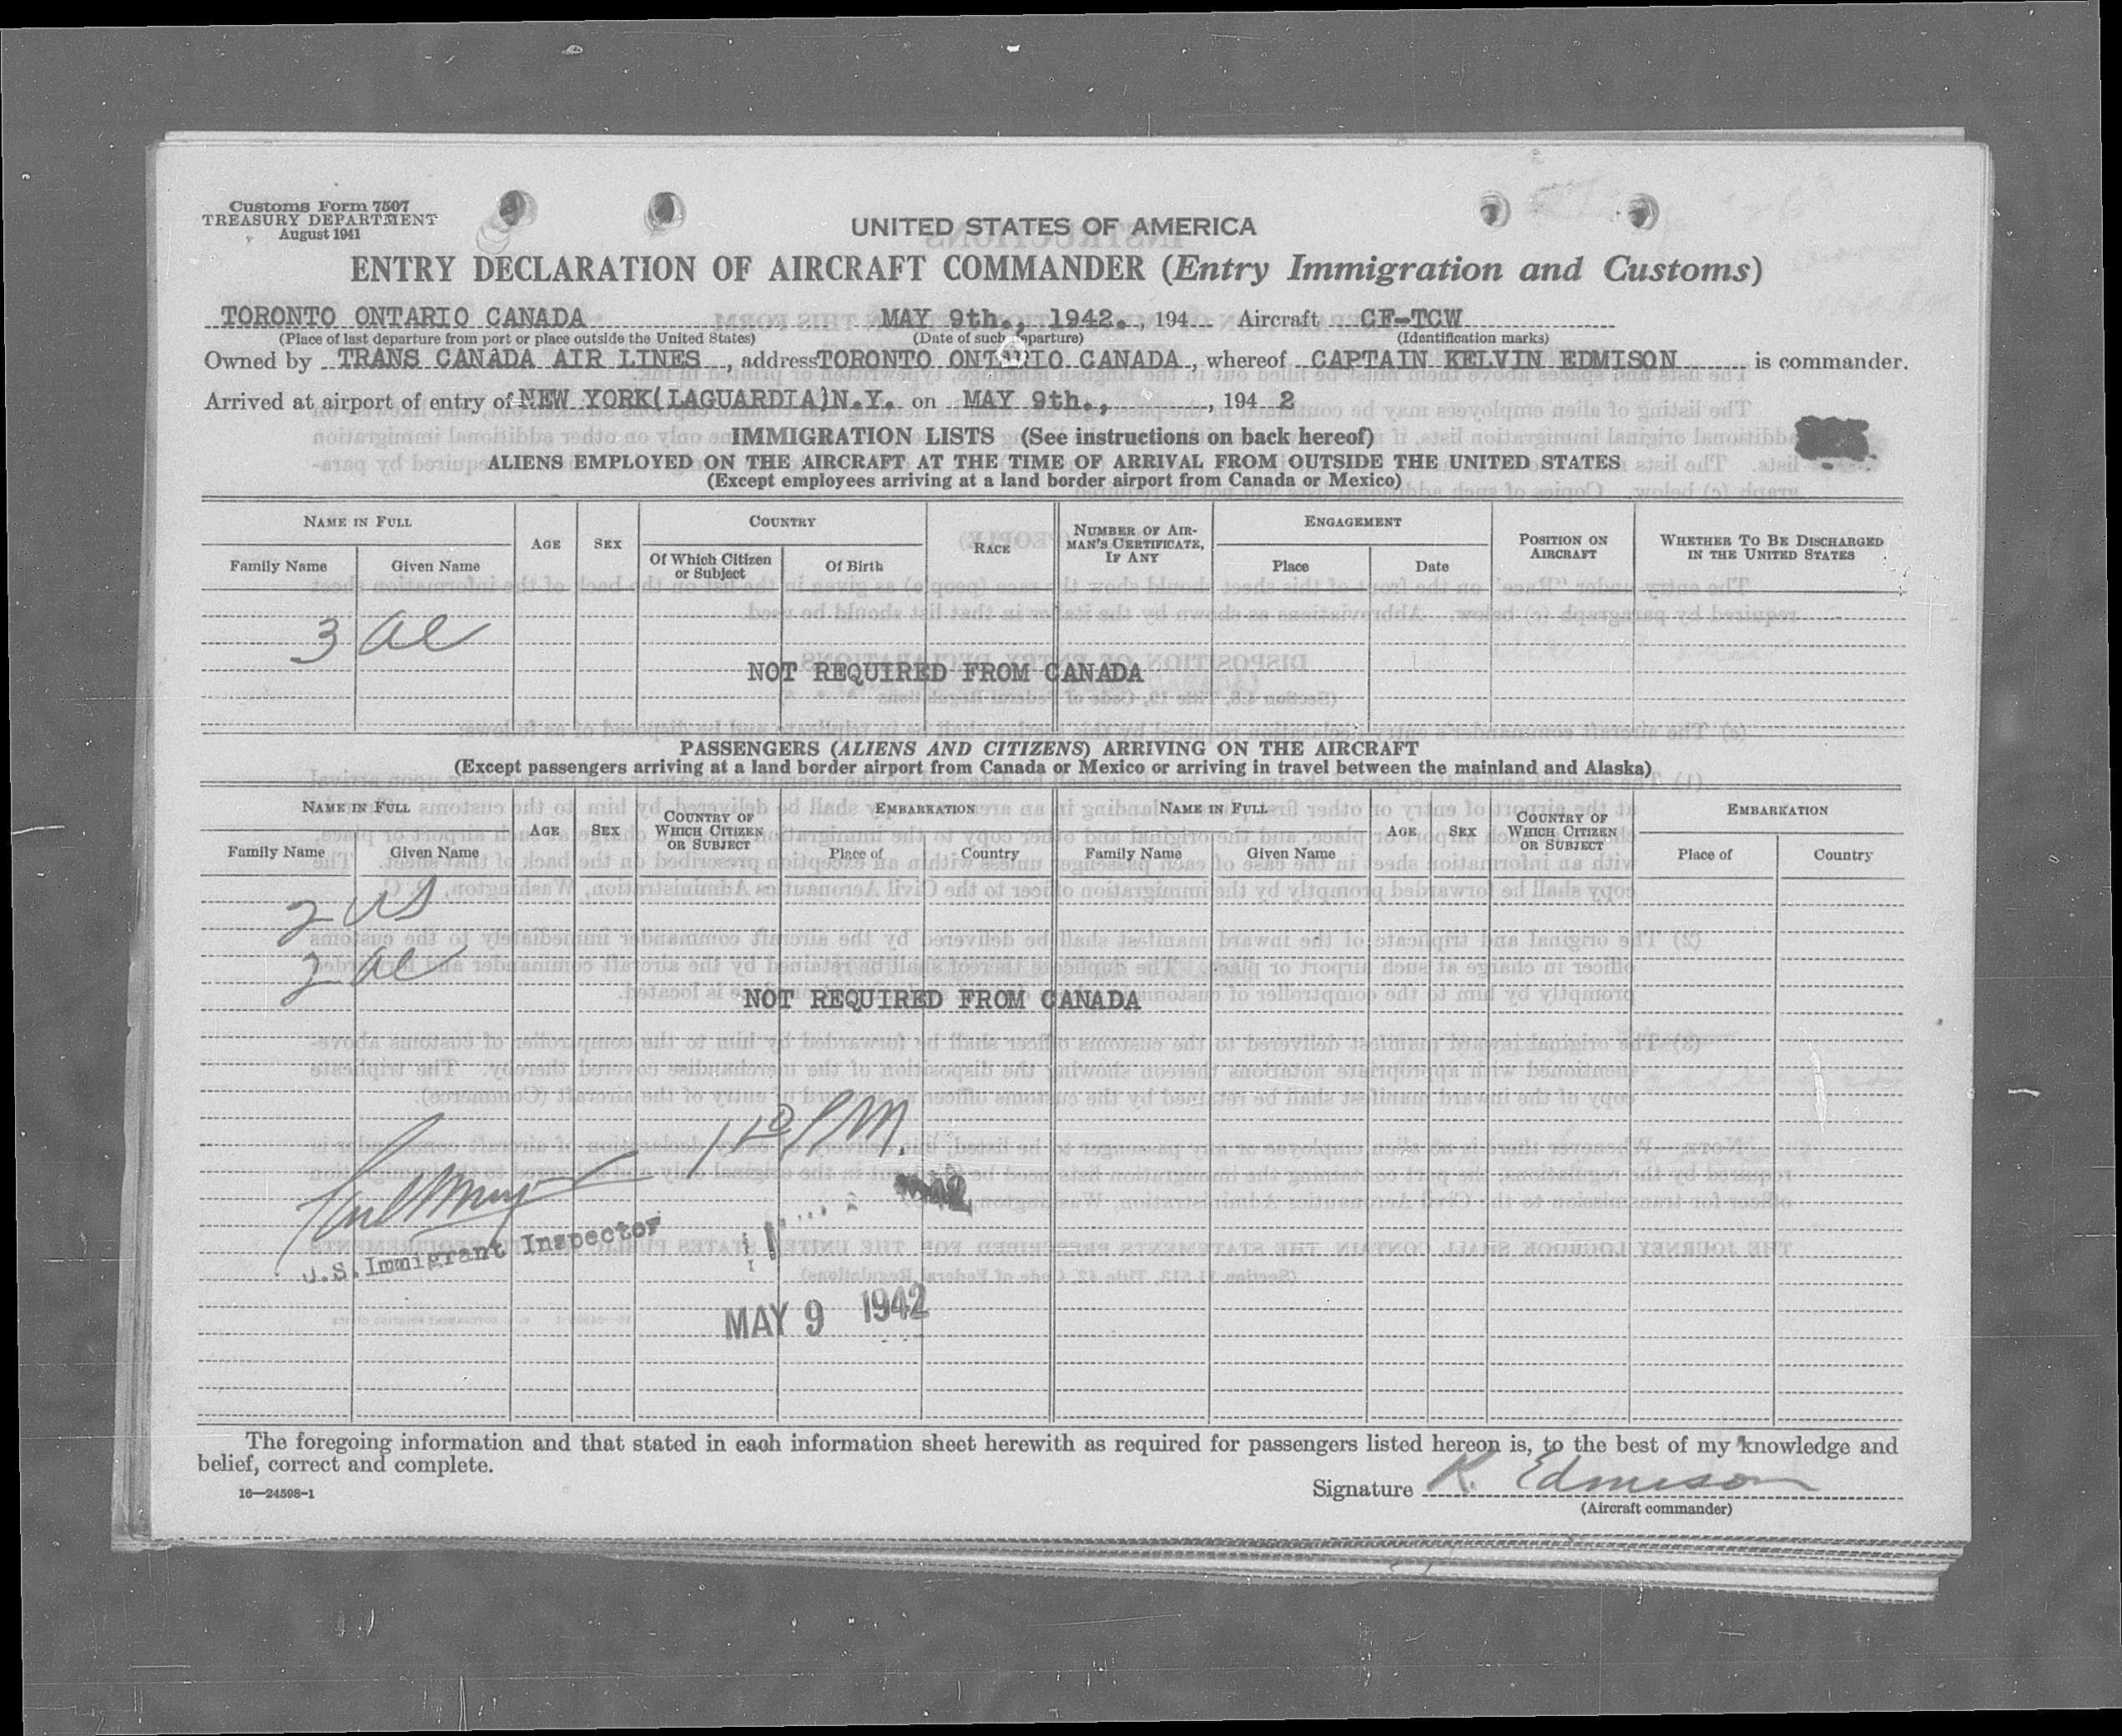 Customs Form 7507
TREASURY DEPARTMENT
August 1941
UNITED STATES OF AMERICA
ENTRY DECLARATION OF AIRCRAFT COMMANDER (Entry Immigration and Customs)
TORONTO ONTARIO CANADA MAY 9th., 1942. , 194 Aircraft CF-TCW
(Place of last departure from port or place outside the United States) (Date of such departure) (Identification marks)
Owned by TRANS CANADA AIR LINES , address TORONTO ONTARIO CANADA , whereof CAPTAIN KELVIN EDMISON is commander.
Arrived at airport of entry of NEW YORK(LAGUARDIA)N.Y. on MAY 9th., , 194 2
IMMIGRATION LISTS (See instructions on back hereof)
ALIENS EMPLOYED ON THE AIRCRAFT AT THE TIME OF ARRIVAL FROM OUTSIDE THE UNITED STATES
(Except employees arriving at a land border airport from Canada or Mexico)
NAME IN FULL AGE SEX COUNTRY RACE NUMBER OF AIRMAN'S CERTIFICATE, IF ANY ENGAGEMENT POSITION ON AIRCRAFT WHETHER TO BE DISCHARGED IN THE UNITED STATES
Family Name Given Name Of Which Citizen or Subject Of Birth Place Date
3 al
NOT REQUIRED FROM CANADA
PASSENGERS (ALIENS AND CITIZENS) ARRIVING ON THE AIRCRAFT
(Except passengers arriving at a land border airport from Canada or Mexico or arriving in travel between the mainland and Alaska)
NAME IN FULL AGE SEX COUNTRY OF WHICH CITIZEN OR SUBJECT EMBARKATION NAME IN FULL AGE SEX COUNTRY OF WHICH CITIZEN OR SUBJECT EMBARKATION
Family Name Given Name Place of Country Family Name Given Name Place of Country
2 US
2 al
NOT REQUIRED FROM CANADA
PM.
U.S. Immigrant Inspector
MAY 9 1942
The foregoing information and that stated in each information sheet herewith as required for passengers listed hereon is, to the best of my knowledge and
belief, correct and complete.
16—24598-1
Signature K. Edmison
(Aircraft commander)